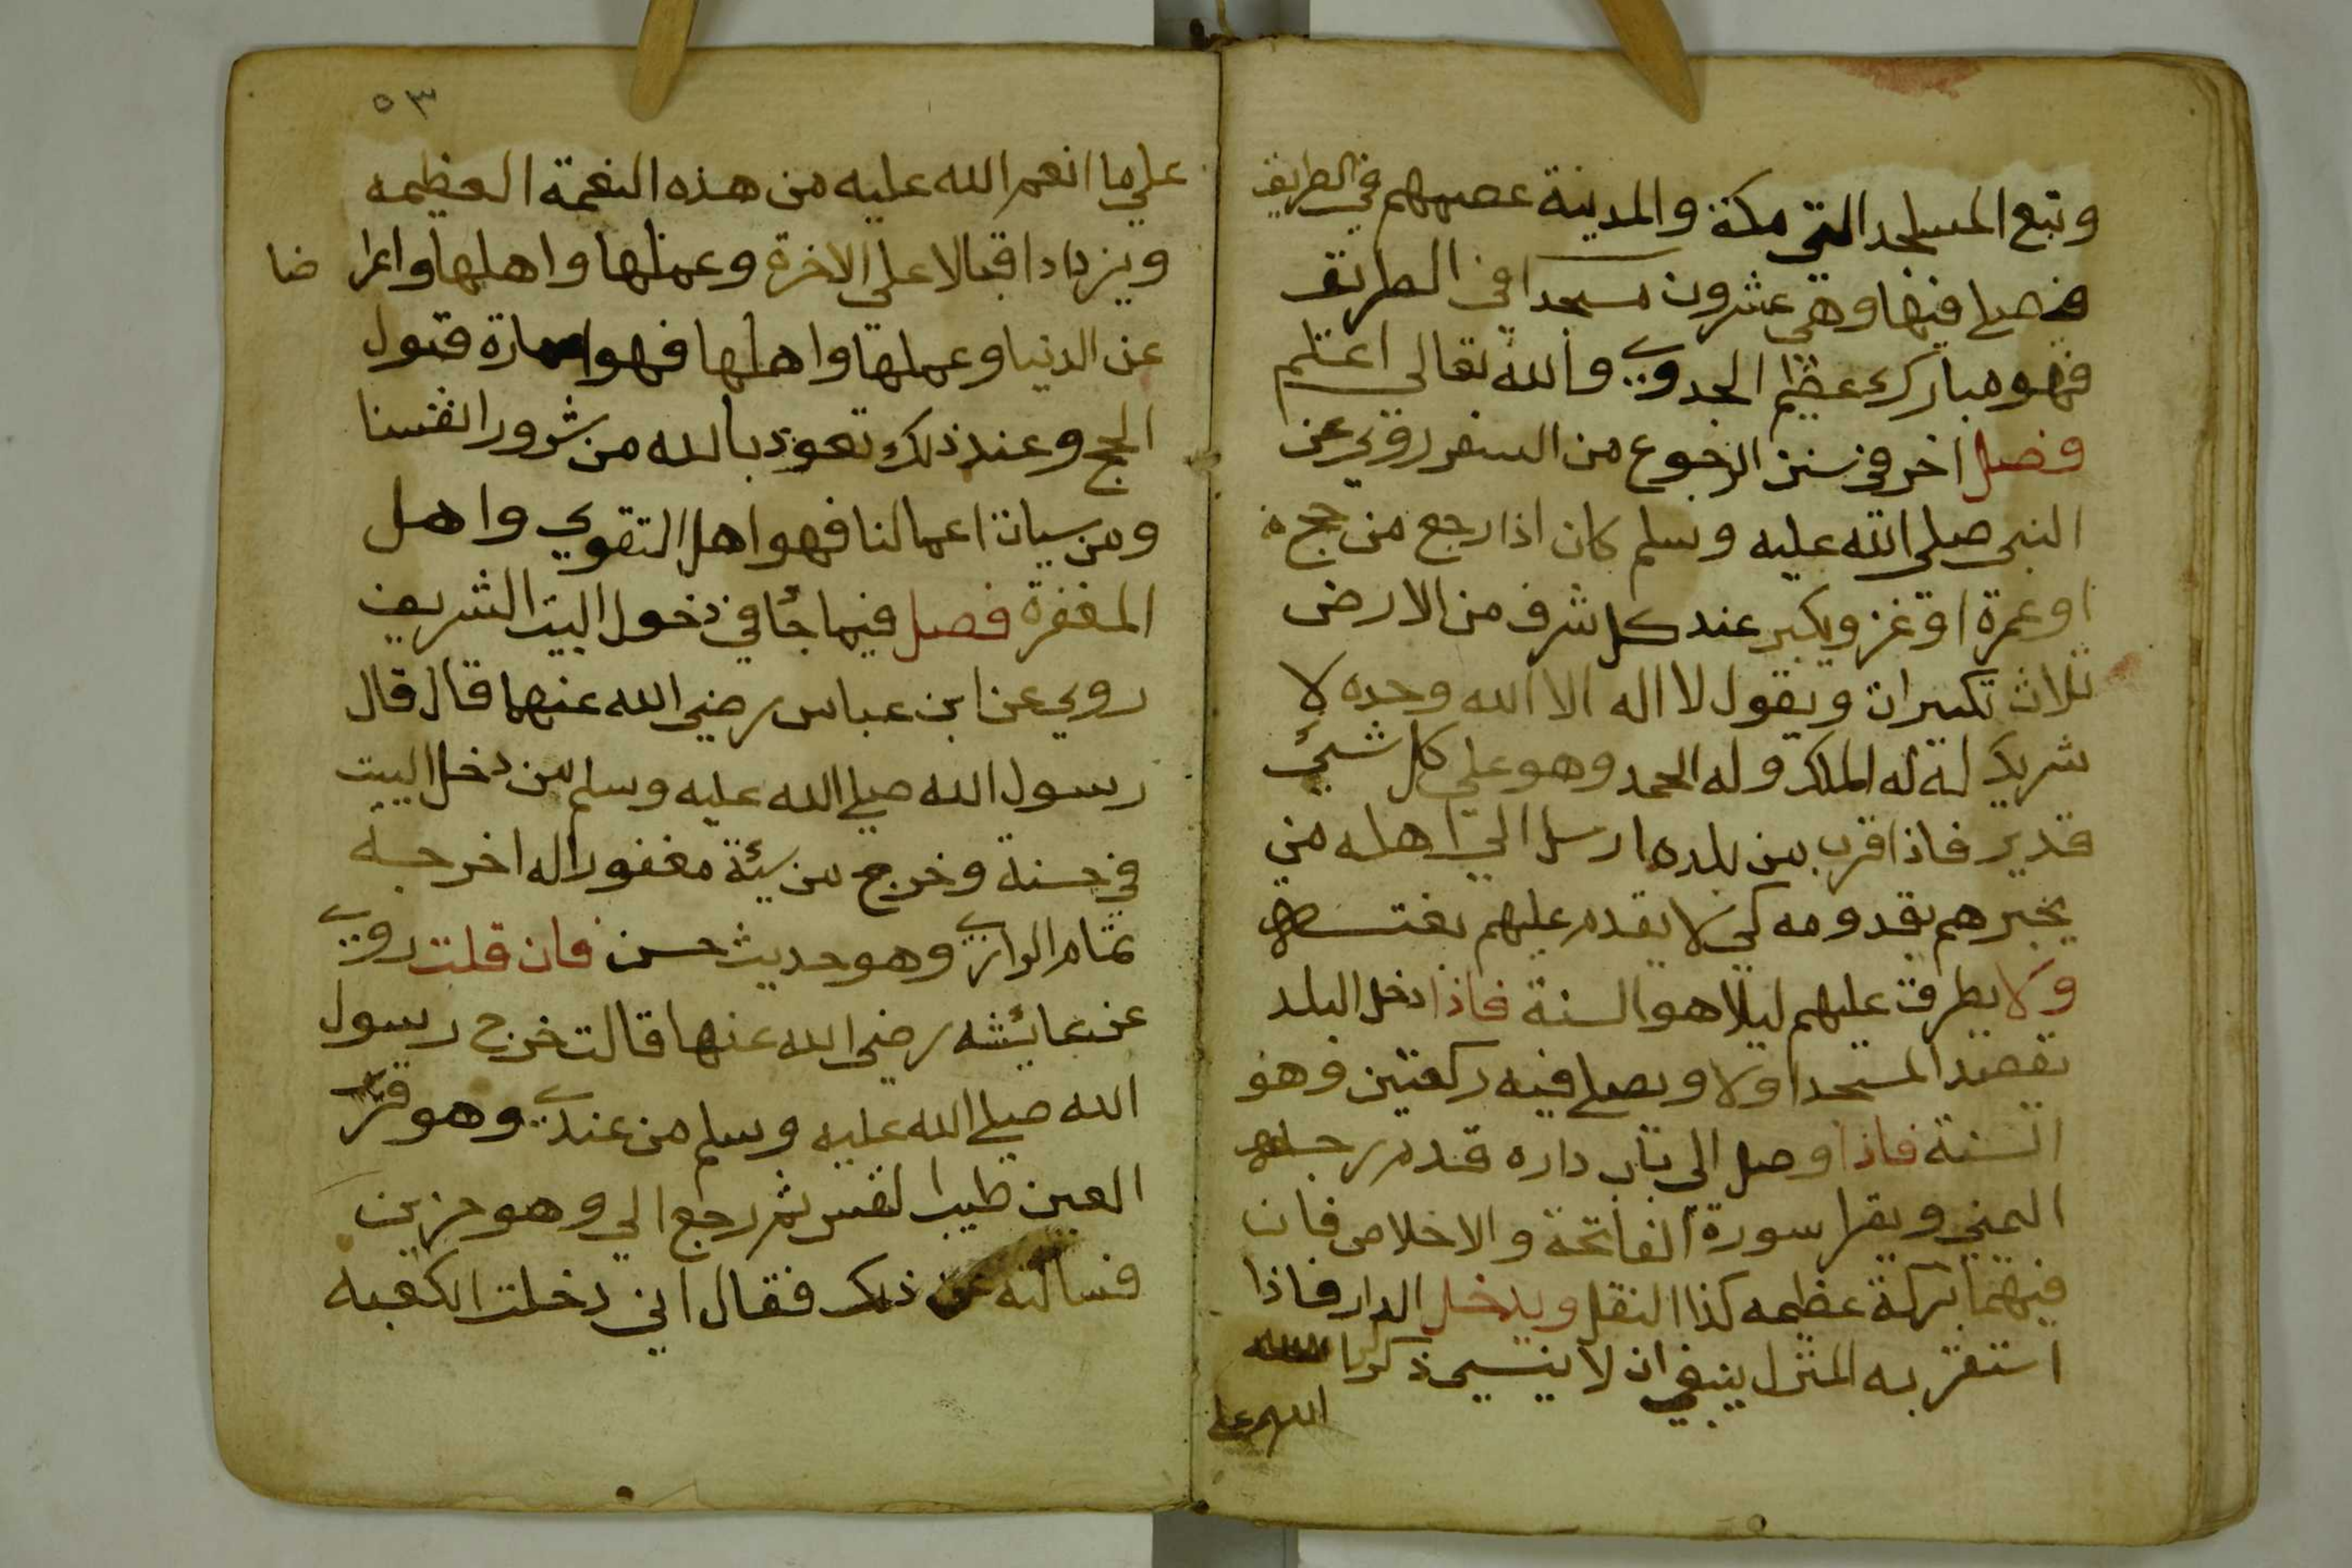 وتبع المساجد التي مكة والمدينة في الطريق
فصلى فيها وهي عشرون مسجدا في الطريق
فهو مبارك عظيم الجدوي والله تعالى اعلم
فصل اخر في سنن الرجوع من السفر روي عن
النبي صلى الله عليه وسلم كان اذا رجع من حج
او عمرة او غزو يكبر عند كل شرف من الارض
ثلاث تكبيرات ويقول لا اله الا الله وحده لا
شريك له له الملك وله الحمد وهو علي كل شيئ
قدير فاذا قرب من بلده ارسل الي اهله من
يخبرهم بقدومه كي لا يقدم عليهم بغتة
ولا يطرق عليهم ليلا هو السنة فاذا دخل البلد
يقصد المسجد اولا ويصلي فيه ركعتين وهو
السنة فاذا وصل الى باب داره قدم رجله
اليمني ويقرا سورة الفاتحة والاخلاص فان
فيهما بركة عظيمه كذا النقل ويدخل الدار فاذا
استقر به المنزل ينبغي ان لا ينسي ذكر الله
٥٣
علي ما انعم الله عليه من هذه النعمة العظيمه
ويزداد اقبالا على الاخرة وعملها واهلها واعراضا
عن الدنيا وعملها واهلها فهو امارة قبول
الحج وعند ذلك تعوذ بالله من شرور انفسنا
ومن سيات اعمالنا فهو اهل التقوي واهل
المغفرة فصل فيما جأ في دخول البيت الشريف
روي عن ابن عباس رضي الله عنهما قال قال
رسول الله صلي الله عليه وسلم من دخل البيت
في حسنة وخرج من سيئة مغفورا له اخرجه
تمام الرازي وهو حديث حسن فان قلت روي
عن عائشه رضي الله عنها قالت خرج رسول
الله صلي الله عليه وسلم من عندي وهو قرير
العين طيب النفس ثم رجع الي وهو حزين
فسالته عن ذلك فقال اني دخلت الكعبه